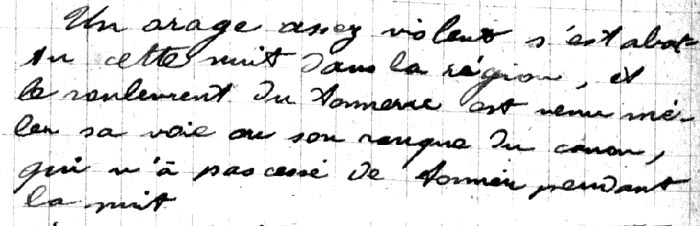 Un orage assez violent s'est abat-
tu cette nuit dans la région, et
le roulement du tonnerre est venu mê-
ler sa voie au son rauque du canon,
qui n'à pas cessé de tonner pendant
la nuit